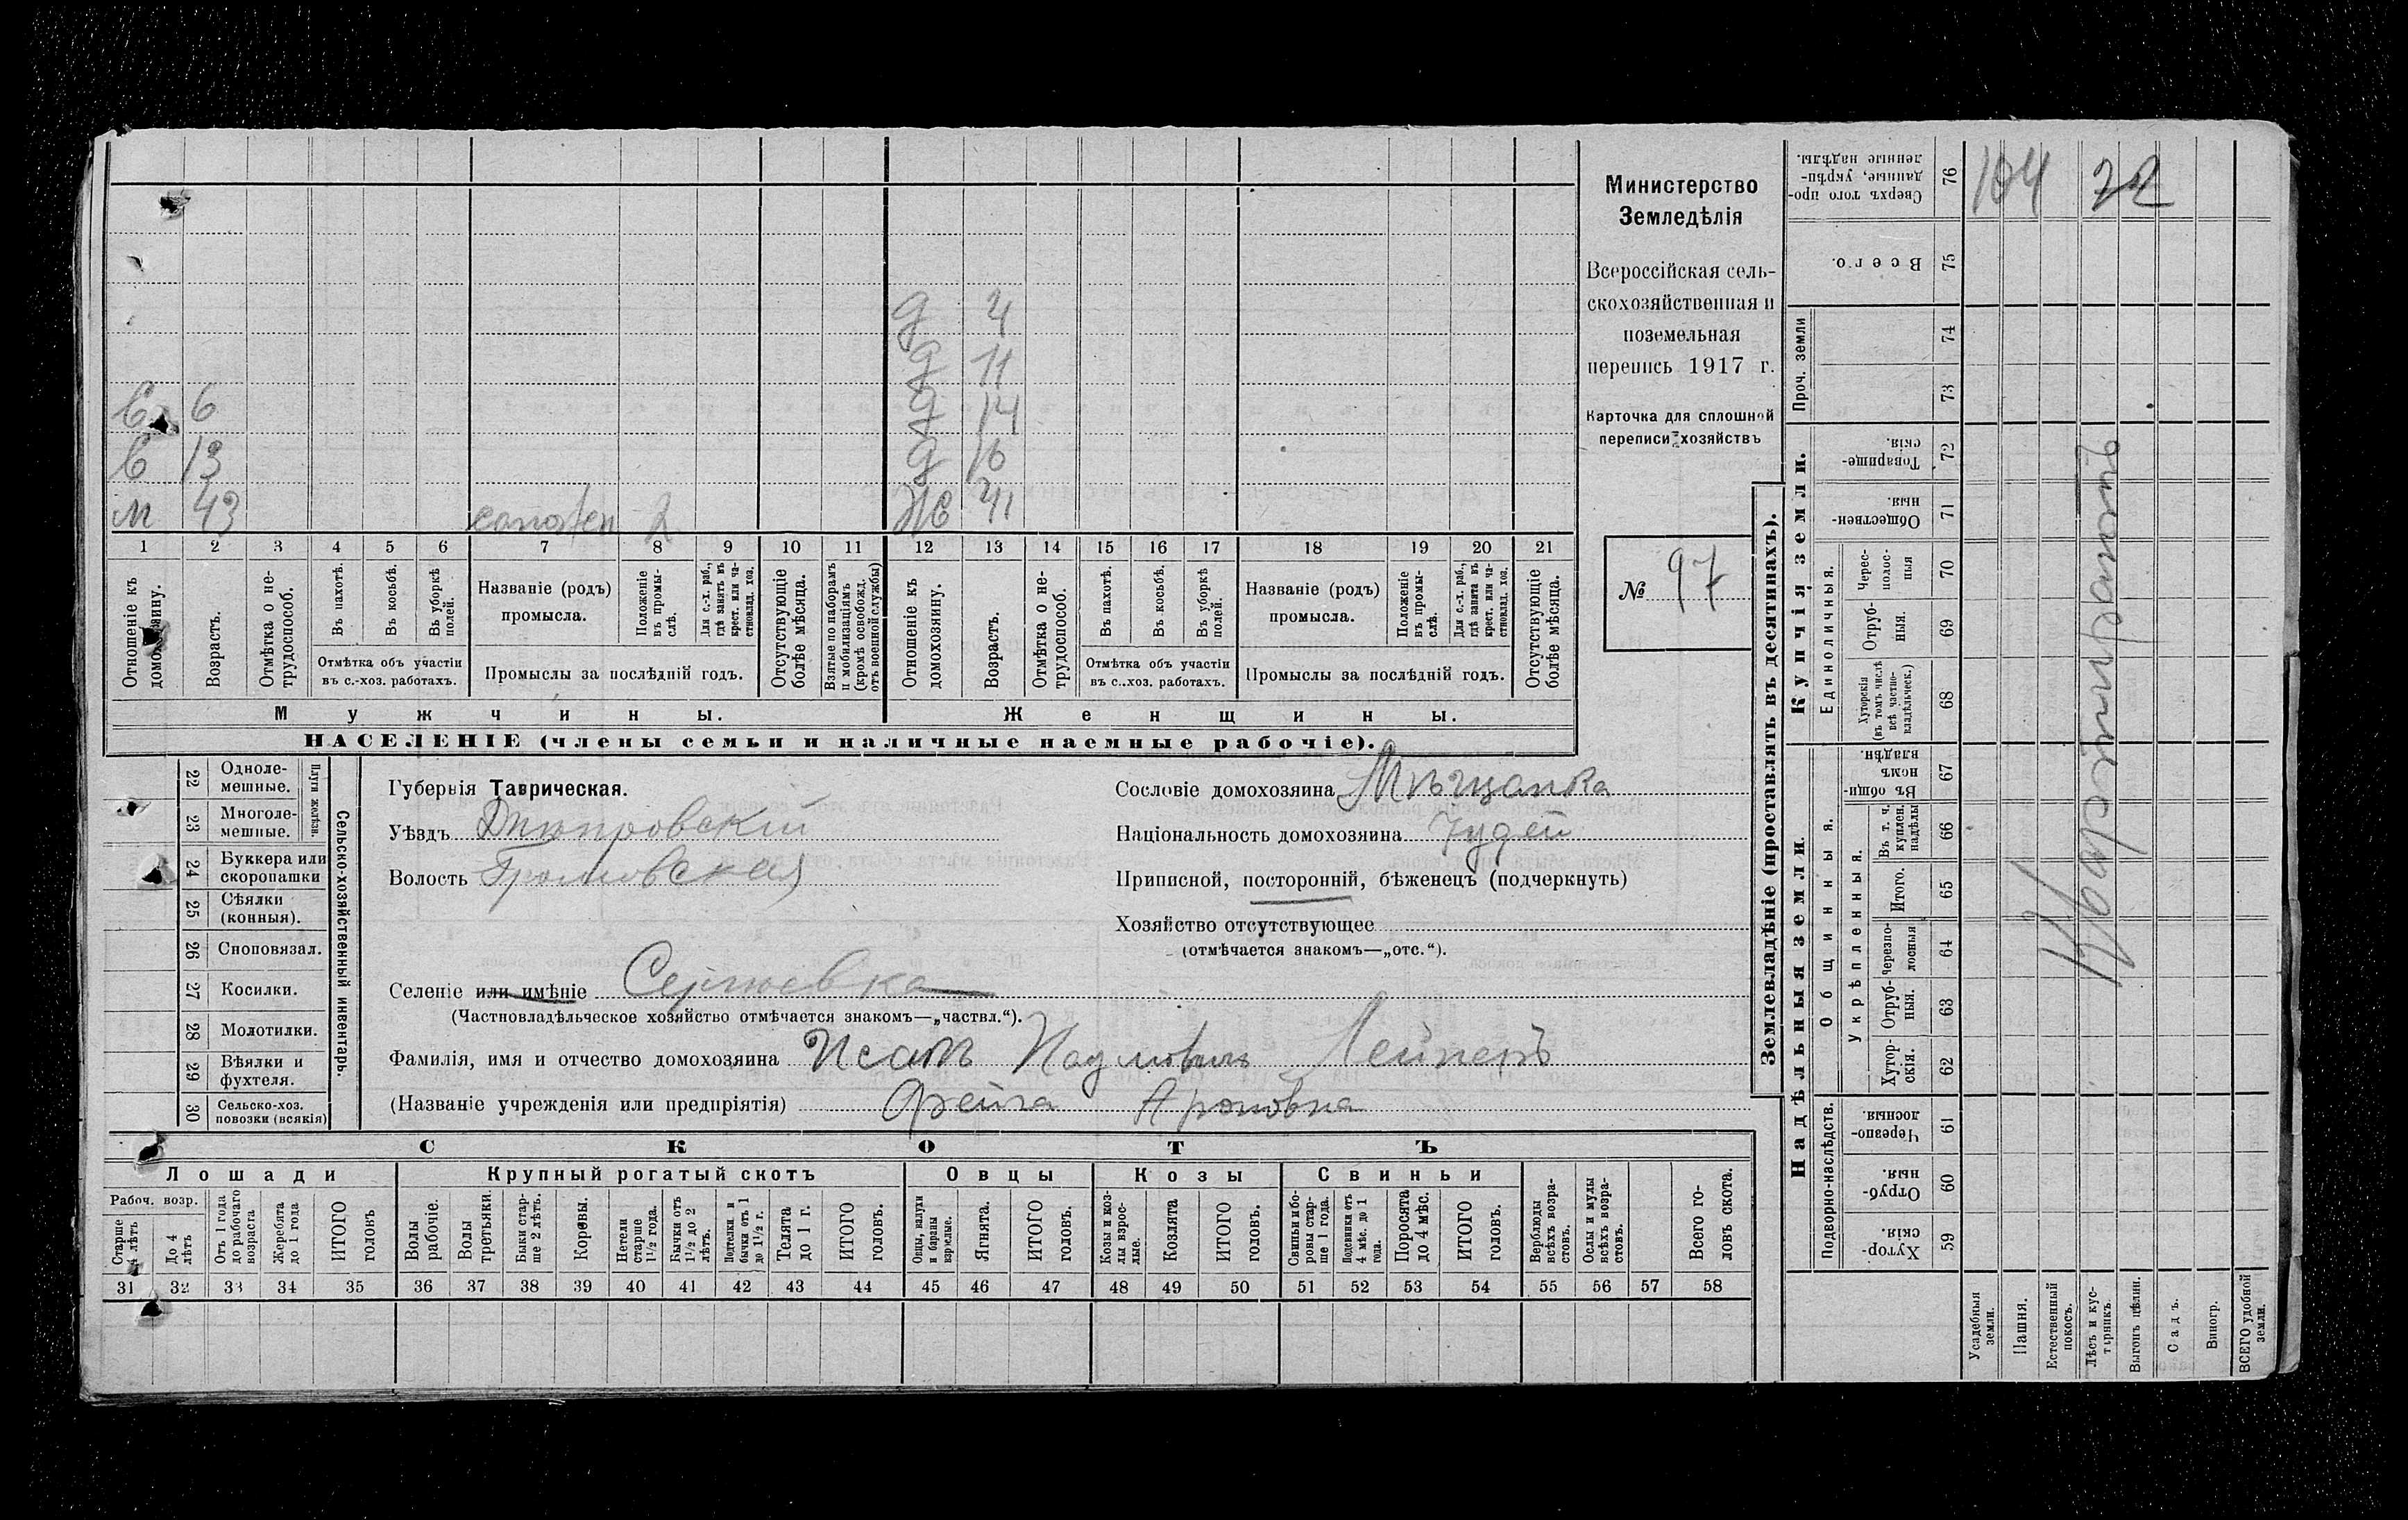 Министерство
Земледѣлія
Всероссійская сель-
скохозяйственная и
поземельная
перепись 1917 г.
Карточка для сплошной
переписи хозяйствъ
№ 97
д 4
д 11
с 6 д 14
с 13 д 16
м 43 2 же 41
1 2 3 4 5 6 7 8 9 10 11 12 13 14 15 16 17 18 19 20 21
Отношеніе къ домохозяину.
Возрастъ.
Отмѣтка о не-трудоспособ.
Въ пахотѣ.
Въ косьбѣ.
Въ уборкѣ полей.
Отмѣтка объ участіи
въ с.-хоз. работахъ.
Названіе (родъ)
промысла.
Положеніе въ промы-слѣ.
Для с.-х. раб., гдѣ занятъ въ крест. или ча-стновлад. хоз.
Промыслы за послѣдній годъ.
Отсутствующіе болѣе мѣсяца.
Взятые по наборамъ и мобилизаціямъ (кромѣ освобожд. отъ военной службы)
Отношеніе къ домохозяину.
Возрастъ.
Отмѣтка о не-трудоспособ.
Въ пахотѣ.
Въ косьбѣ.
Въ уборкѣ полей.
Отмѣтка объ участіи
въ с..хоз. работахъ.
Названіе (родъ)
промысла.
Положеніе въ промы-слѣ.
Для с.-х. раб., гдѣ занята въ крест. или ча-стновлад. хоз.
Промыслы за послѣдній годъ.
Отсутствующіе болѣе мѣсяца.
Мужчины. Женщины.
НАСЕЛЕНІЕ (члены семьи и наличные наемные рабочіе).
Сельско-хозяйственный инвентарь.
Плуги желѣзн
22 Одноле-мешные.
23 Многоле-мешные.
24 Буккера или скоропашки
25 Сѣялки (конныя).
26 Сноповязал.
27 Косилки.
28 Молотилки.
29 Вѣялки и фухтеля.
30 Сельско-хоз. повозки (всякія)
Губернія Таврическая.
Уѣздъ Днѣпровскій
Волость Громовская
Сословіе домохозяина Мѣщанка
Національность домохозяина Іудей
Приписной, посторонній, бѣженецъ (подчеркнуть)
Хозяйство отсутствующее
(отмѣчается знакомъ—„отс.“).
Селеніе или имѣніе Сергѣевка
(Частновладѣльческое хозяйство отмѣчается знакомъ—„частвл.“).
Фамилія, имя и отчество домохозяина Исакъ Наумовичъ
(Названіе учрежденія или предпріятія) Фейга Ароновна
СКОТЪ
Лошади Крупный рогатый скотъ Овцы Козы Свиньи
Рабоч. возр.
Старше 4 лѣтъ
До 4 лѣтъ
Отъ 1 года до рабочаго возраста
Жеребята до 1 года
ИТОГО головъ
Волы рабочіе.
Волы третьяки.
Быки стар-ше 2 лѣтъ.
Коровы.
Нетели старше 1½ года.
Бычки отъ 1½ до 2 лѣтъ.
Подтелки и бычки отъ 1 до 1½ г.
Телята до 1 г.
ИТОГО головъ.
Овцы, валухи и бараны взрослые.
Ягнята.
ИТОГО головъ.
Козы и коз-лы взрос-лые.
Козлята
ИТОГО головъ.
Свиньи и бо-ровы стар-ше 1 года.
Подсвинки отъ 4 мѣс. до 1 года.
Поросята до 4 мѣс.
ИТОГО головъ.
Верблюды всѣхъ возра-стовъ.
Ослы и мулы всѣхъ возра-стовъ.
Всего го-ловъ скота.
31 32 33 34 35 36 37 38 39 40 41 42 43 44 45 46 47 48 49 50 51 52 53 54 55 56 57 58
Землевладѣніе (проставлять въ десятинахъ).
Надѣльныя земли. Купчія земли.
Подворно-наслѣдств.
Общинныя.
Укрѣпленныя.
Единоличныя.
Проч. земли
Хутор-скія. 59
Отруб-ныя. 60
Черезпо-лосныя. 61
Хутор-скія. 62
Отруб-ныя. 63
Черезпо-лосныя 64
Итого. 65
Въ т. ч. куплен. надѣлы 66
Въ общи-номъ владѣн. 67
Хуторскія (въ томъ числѣ всѣ частно-владѣльческ.) 68
Отруб-ныя 69
Черес-полос-ныя 70
Обществен-ныя. 71
Товарище-скія. 72
73
74
Всего. 75
Сверхъ того про-данные, укрѣп-ленные надѣлы. 76
Усадебныя земли.
Пашня.
Естественный покосъ.
Лѣсъ и кус-тарникъ.
Выгонъ цѣлин.
Садъ.
Виногр.
ВСЕГО удобной земли.
104 22
Квартирантъ